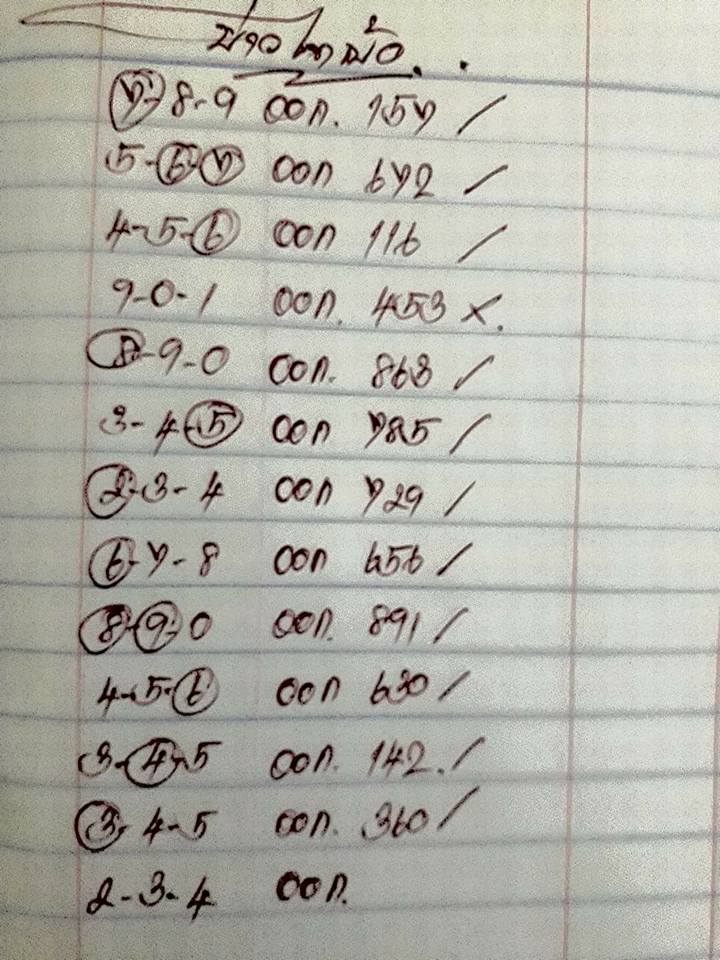 7-8-9 ออก. 157 /
5-6-7 ออก 672 /
4-5-6 ออก 116 /
9-0-1 ออก. 453 ×.
8-9-0 ออก. 863 /
3-4-5 ออก 785 /
2-3-4 ออก 729 /
6-7-8 ออก 656 /
8-9-0 ออก. 891 /
4-5-6 ออก 630 /
3-4-5 ออก. 142. /
3-4-5 ออก. 360 /
2-3-4 ออก.